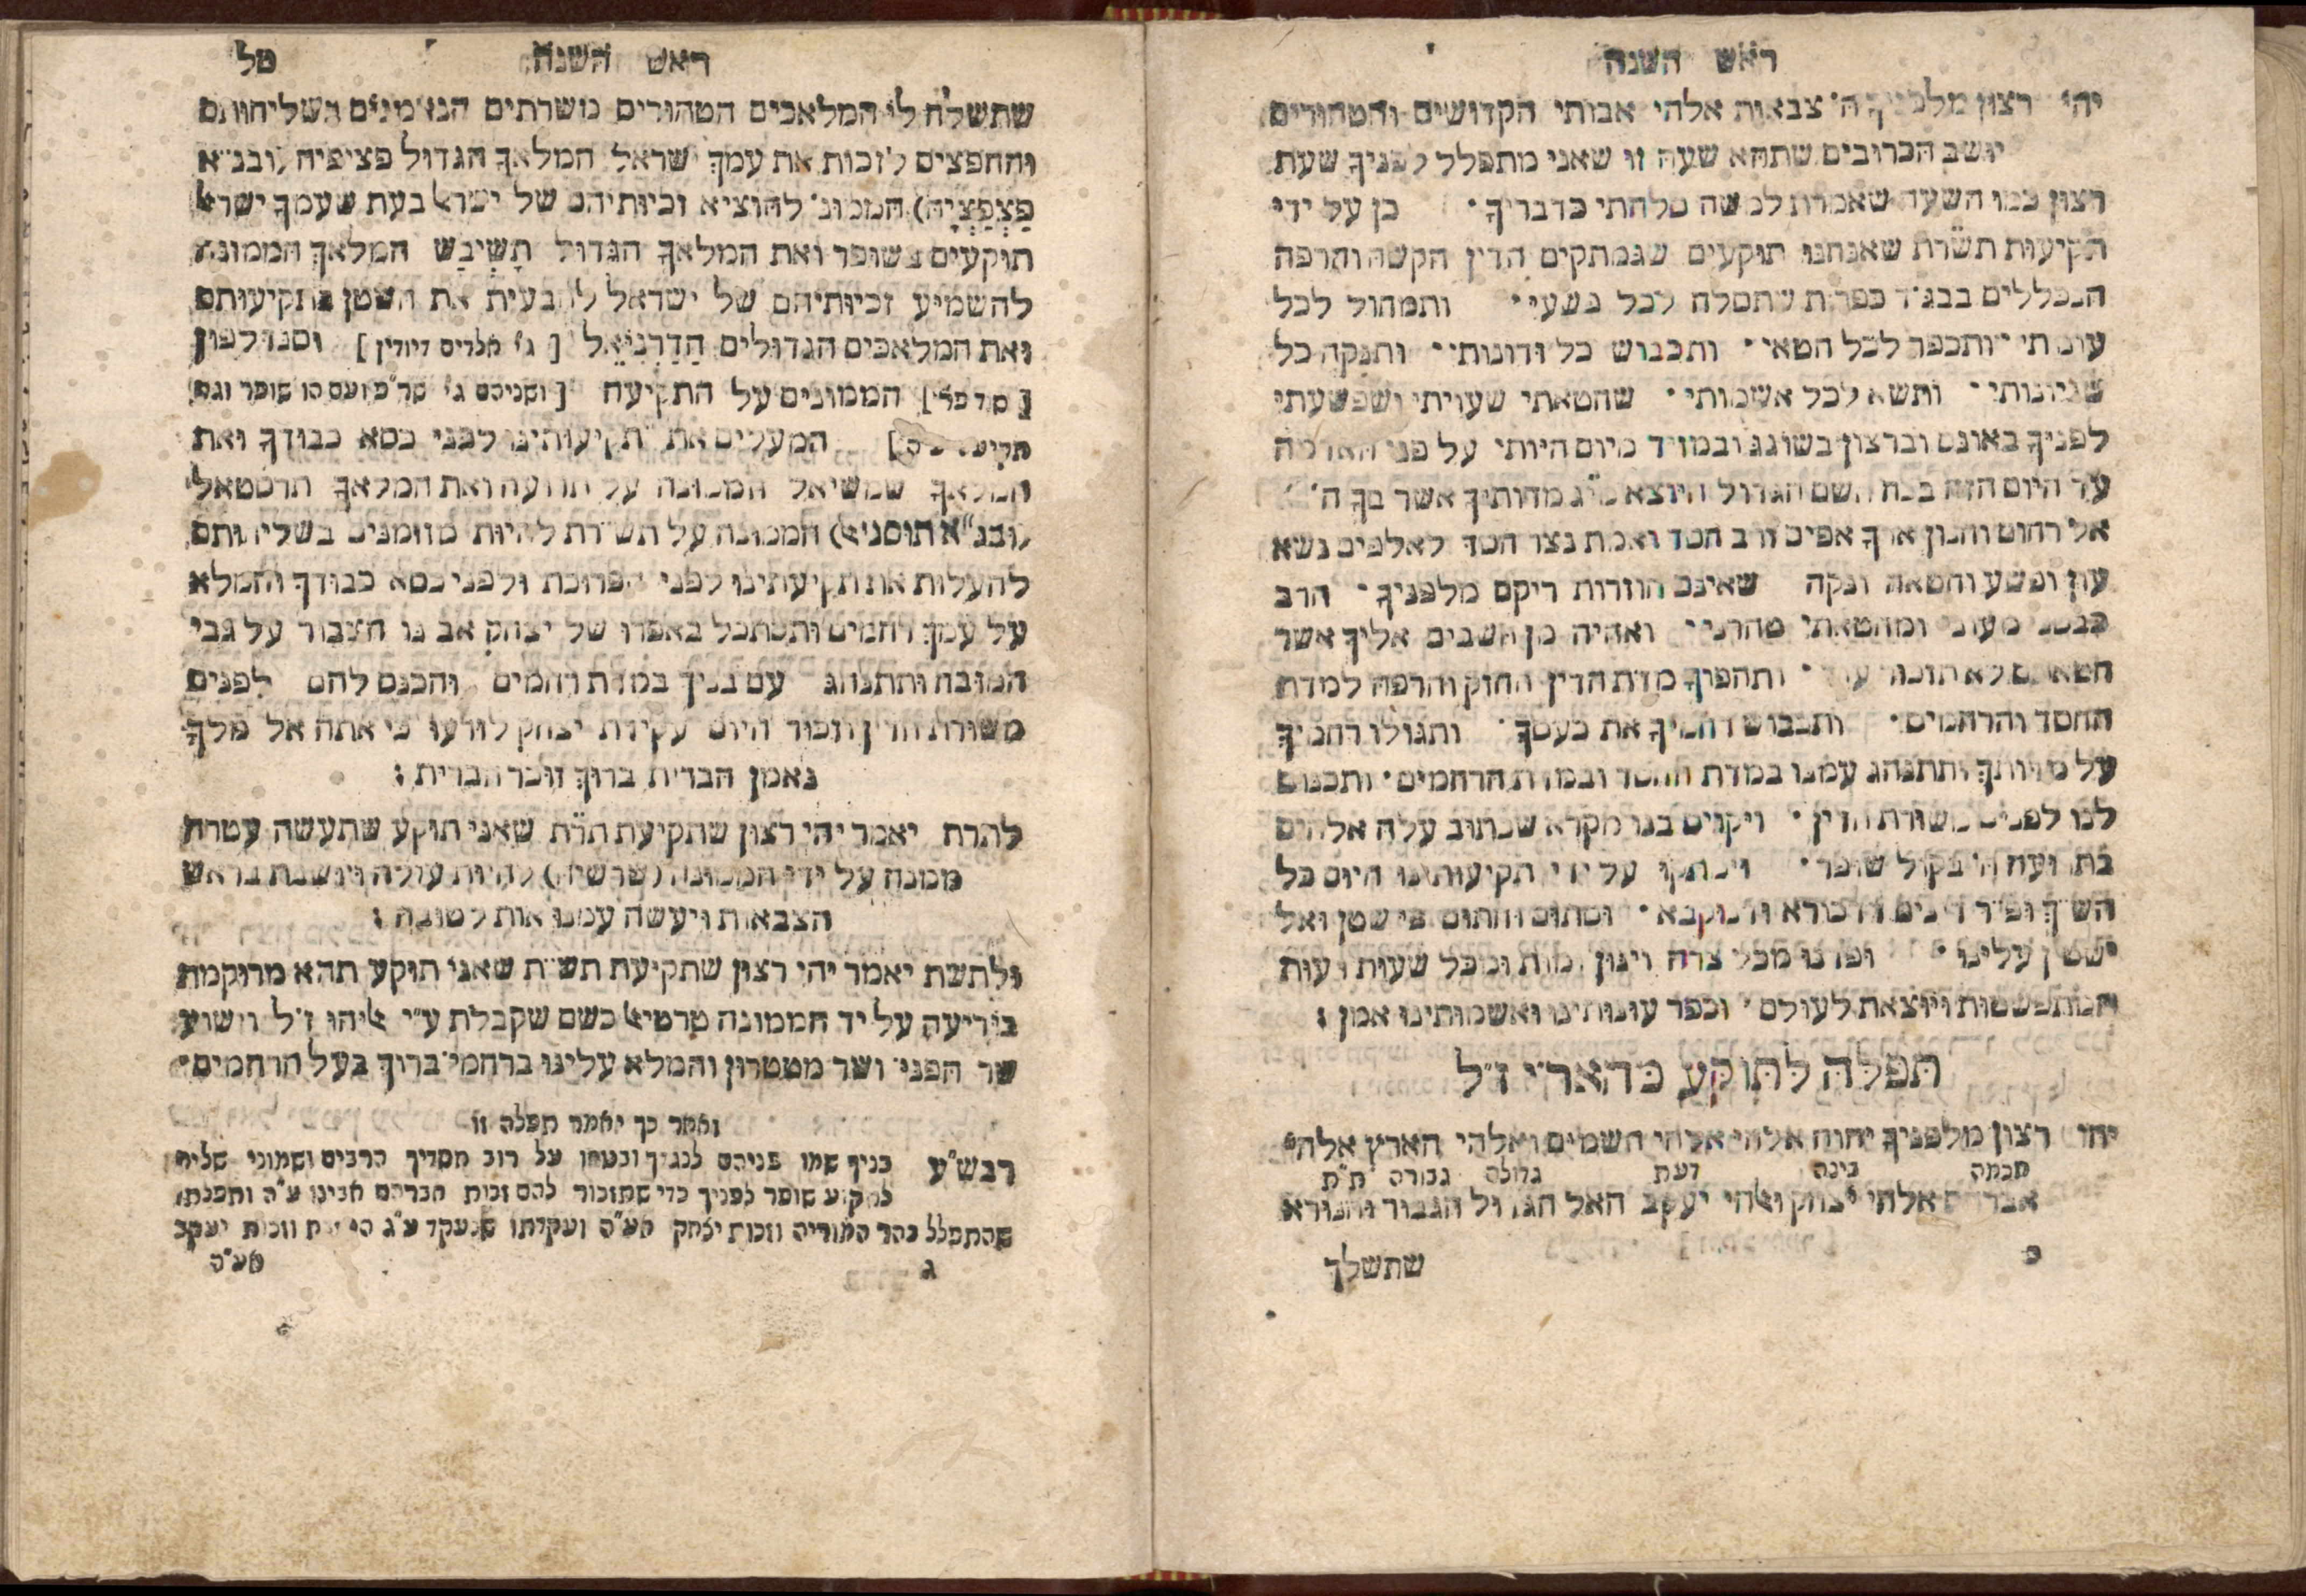 ראש השנה
יהי רצון ה׳ צבאות אלהי אבותי הקדושים והטהורים
יושב הכרובים שתהא שעה זו שאני מתפלל לפניך שעת
רצון כמו השעה שאמרת למשה סלחתי כדבריך · כן על ידי
תקיעות תשר״ת שאנחנו תוקעים שנמתקים הדין הקשה והרפה
הנכללים בבג״ד כפר״ת שתסלח לכל פשעי · ותמחול לכל
ותכפר לכל חטאי · ותכבוש כל זדונותי · ותנקה כל
שגיונותי · ותשא לכל אשמותי · שחטאתי שעויתי ושפשעתי
לפניך באונס וברצון בשוגג ובמזיד מיום היותי על פני האדמה
עד היום הזה בכח השם הגדול היוצא מי״ג מדותיך אשר בך ה׳
אל רחום וחנון ארך אפים ורב חסד ואמת נצר חסד לאלפים נשא
עון ופשע וחטאה ונקה שאינם חוזרות ריקם מלפניך · הרב
כבסני מעוני ומחטאתי טהרני · ואהיה מן השבים אליך אשר
לא עוד · ותהפוך מדת הדין החזק והרפה למדת
החסד והרחמים · ותכבוש רחמיך את כעסך · ותגולו רחמיך
על מדותיך ותתנהג עמנו במדת החסד ובמדת הרחמים · ותכנוס
לנו לפנים משורת הדין · ויקוים בנו מקרא שכתוב עלה אלהים
בתרועה ה׳ בקול שופר · וימתקו על ידי תקיעותינו היום כל
הש״ך ופ״ר דינים · וסתום וחתום פי שטן ואל
ישטין עלינו · ופדנו מכל צרה ויגון ומכל שעות רעות
המתפשטות ויוצאת לעולם · וכפר עונותינו ואשמותינו אמן :
תפלה לתוקע כהאר״י ז״ל
יהי רצון מלפניך יהוה אלהי אלהי השמים ואלהי הארץ אלהי
חכמה בינה דעת גדולה גבורה ת״ת
אברהם אלהי יצחק ואלהי יעקב האל הגדול הגבור והנורא
שתשלך
ראש השנה
טל
שתשלח לי המלאכים הטהורים משרתים הנאמנים בשליחותם
והחפצים לזכות את עמך ישראל המלאך הגדול פציפיה (ובנ״א
פַצְפַצְיָה) הממונ׳ להוציא זכיותיהם של ישראל בעת שעמך ישראל
תוקעים בשופר ואת המלאך הגדול תָשְיבַש המלאך הממונה
להשמיע זכיותיהם של ישראל להבעית את השטן בתקיעותם
ואת המלאכים הגדולים הַדַרְנִיאֵל וסנדלפון
הממונים על התקיעה
המעלים את תקיעותינו לפני כסא כבודך ואת
המלאך שמשיאל הממונה על תרועה ואת המלאך תרסטאל
(ובנ״א תוסניאל) הממונה על תשר״ת להיות מזומנים בשליחותם
להעלות את תקיעתינו לפני הפרוכת ולפני כסא כבודך והמלא
על עמך רחמים ותסתכל באפרו של יצחק אבינו הצבור על גבי
המזבח ותתנהג עם בניך במדת רחמים והכנס להם לפנים
משורת הדין וזכור היום עקידת יצחק לזרעו כי אתה אל מלך
נאמן הברית ברוך זוכר הברית :
לתר״ת יאמר יהי רצון שתקיעת תר״ת שאני תוקע שתעשה עטרת
ממנה על ידי הממונה להיות עולה ויושבת בראש
הצבאות ויעשה עמנו אות לטובה :
ולתש״ת יאמר יהי רצון שתקיעת תש״ת שאני תוקע תהא מרוקמת
ביריעה על יד הממונה טרטיאל כשם שקבלת ע״י אליהו ז״ל וישוע
שר הפני׳ ושר מטטרון והמלא עלינו ברחמי׳ ברוך בעל הרחמים ·
ואחר כך יאמר תפלה זו
רבש״ע בניך שמו פניהם לנגדך ובטחו על רוב חסדיך הרבים ושמוני שליח
לתקוע שופר לפניך כדי שתזכור להם זכות אברהם אבינו ע״ה ותפלתו
שהתפלל בהר המוריה וזכות יצחק אע״ה ועקדתו שנעקד ע״ג וזכות יעקב
ג אע״ה